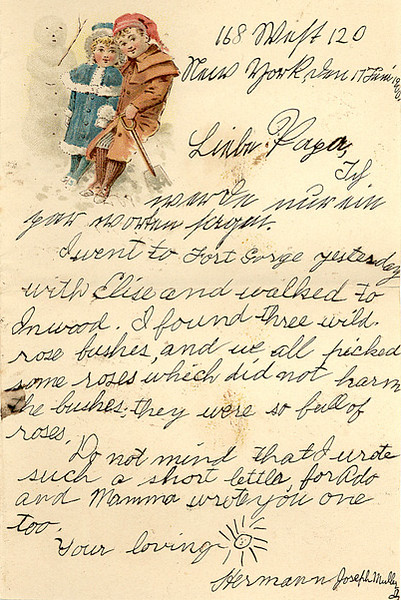 168 West 120
New York, den 17 Juni
Liebe Papa,
Ich
werde nur ein
par worten sagen.
I went to Fort Gorge yesterday
with Elise and walked to
Inwood. I found three wild
rose bushes, and we all picked
some roses which did not harm
the bushes, they were so full of
roses.
Do not mind that I wrote
such a short lettle, for Ado
and Mamma wrote you one
too.
Your loving
Hermann Joseph Muller